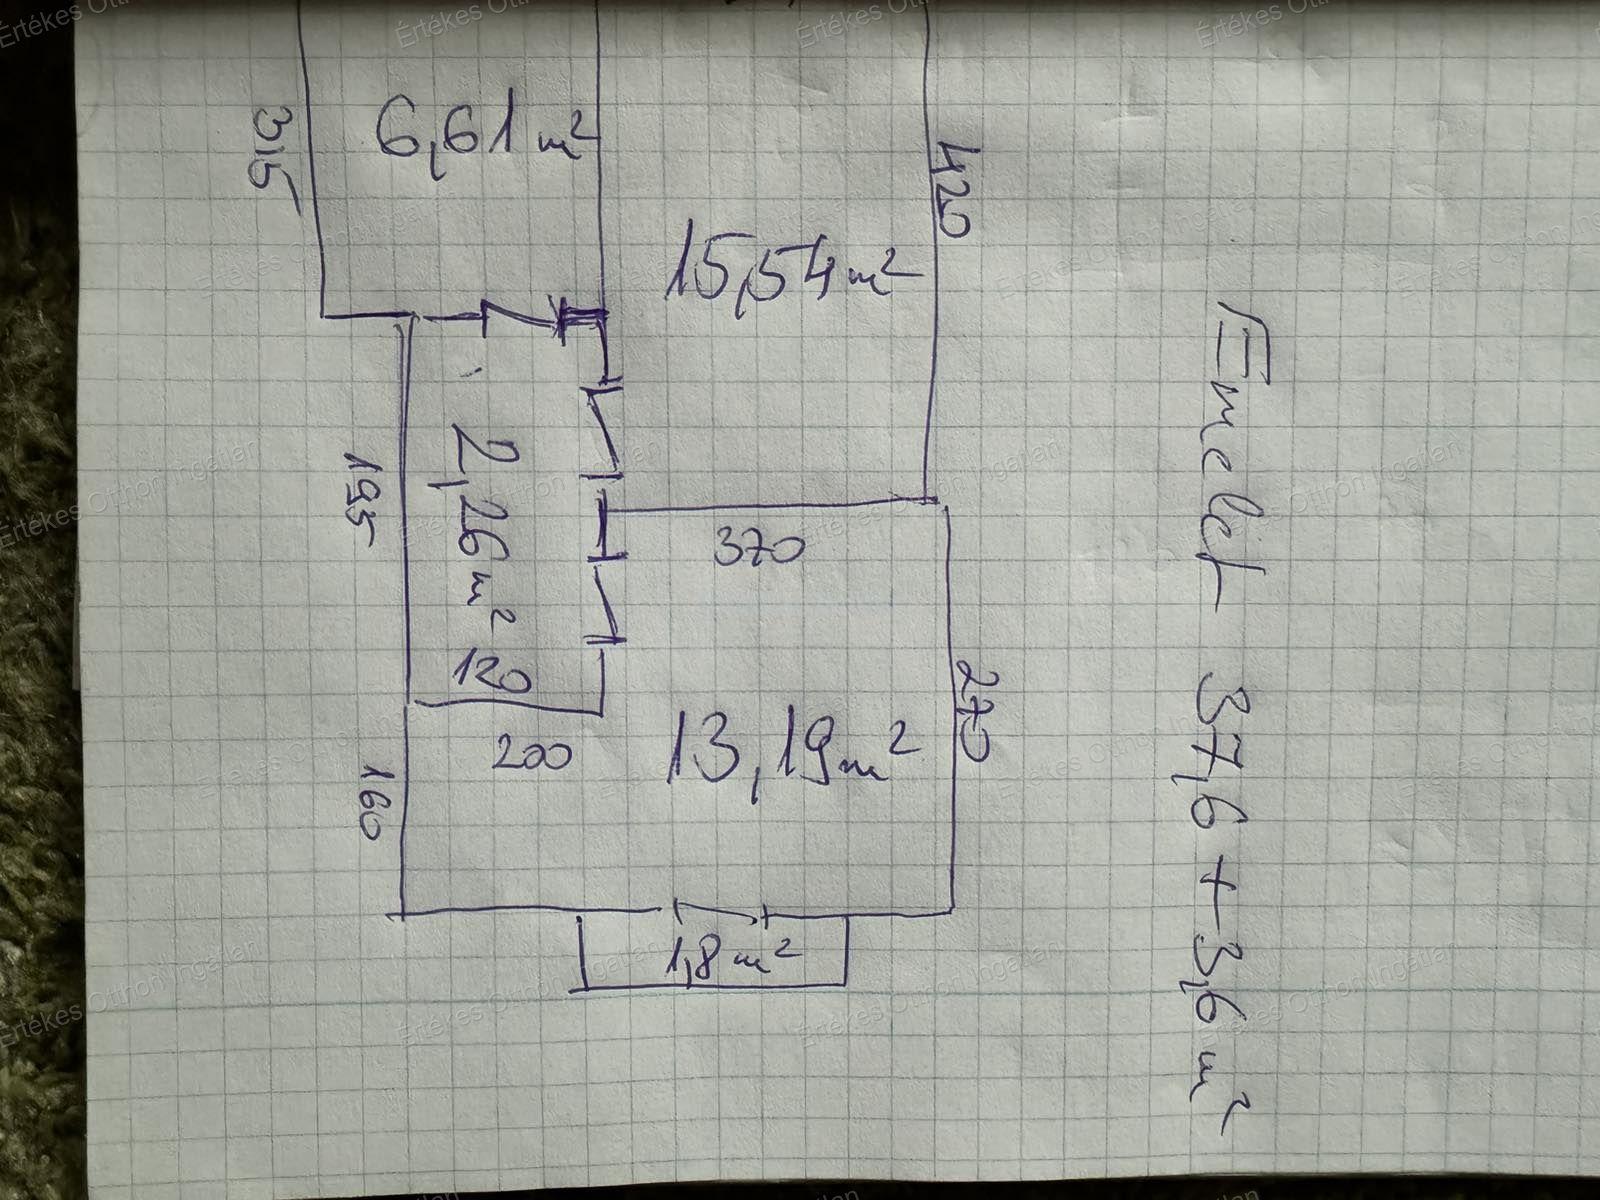 315
6,61 m²
420
15,54 m²
Emelet 37,6 + 3,6 m²
195
2,26 m²
370
120
200
270
13,19 m²
160
1,8 m²
Értékes Otthon Ingatlan